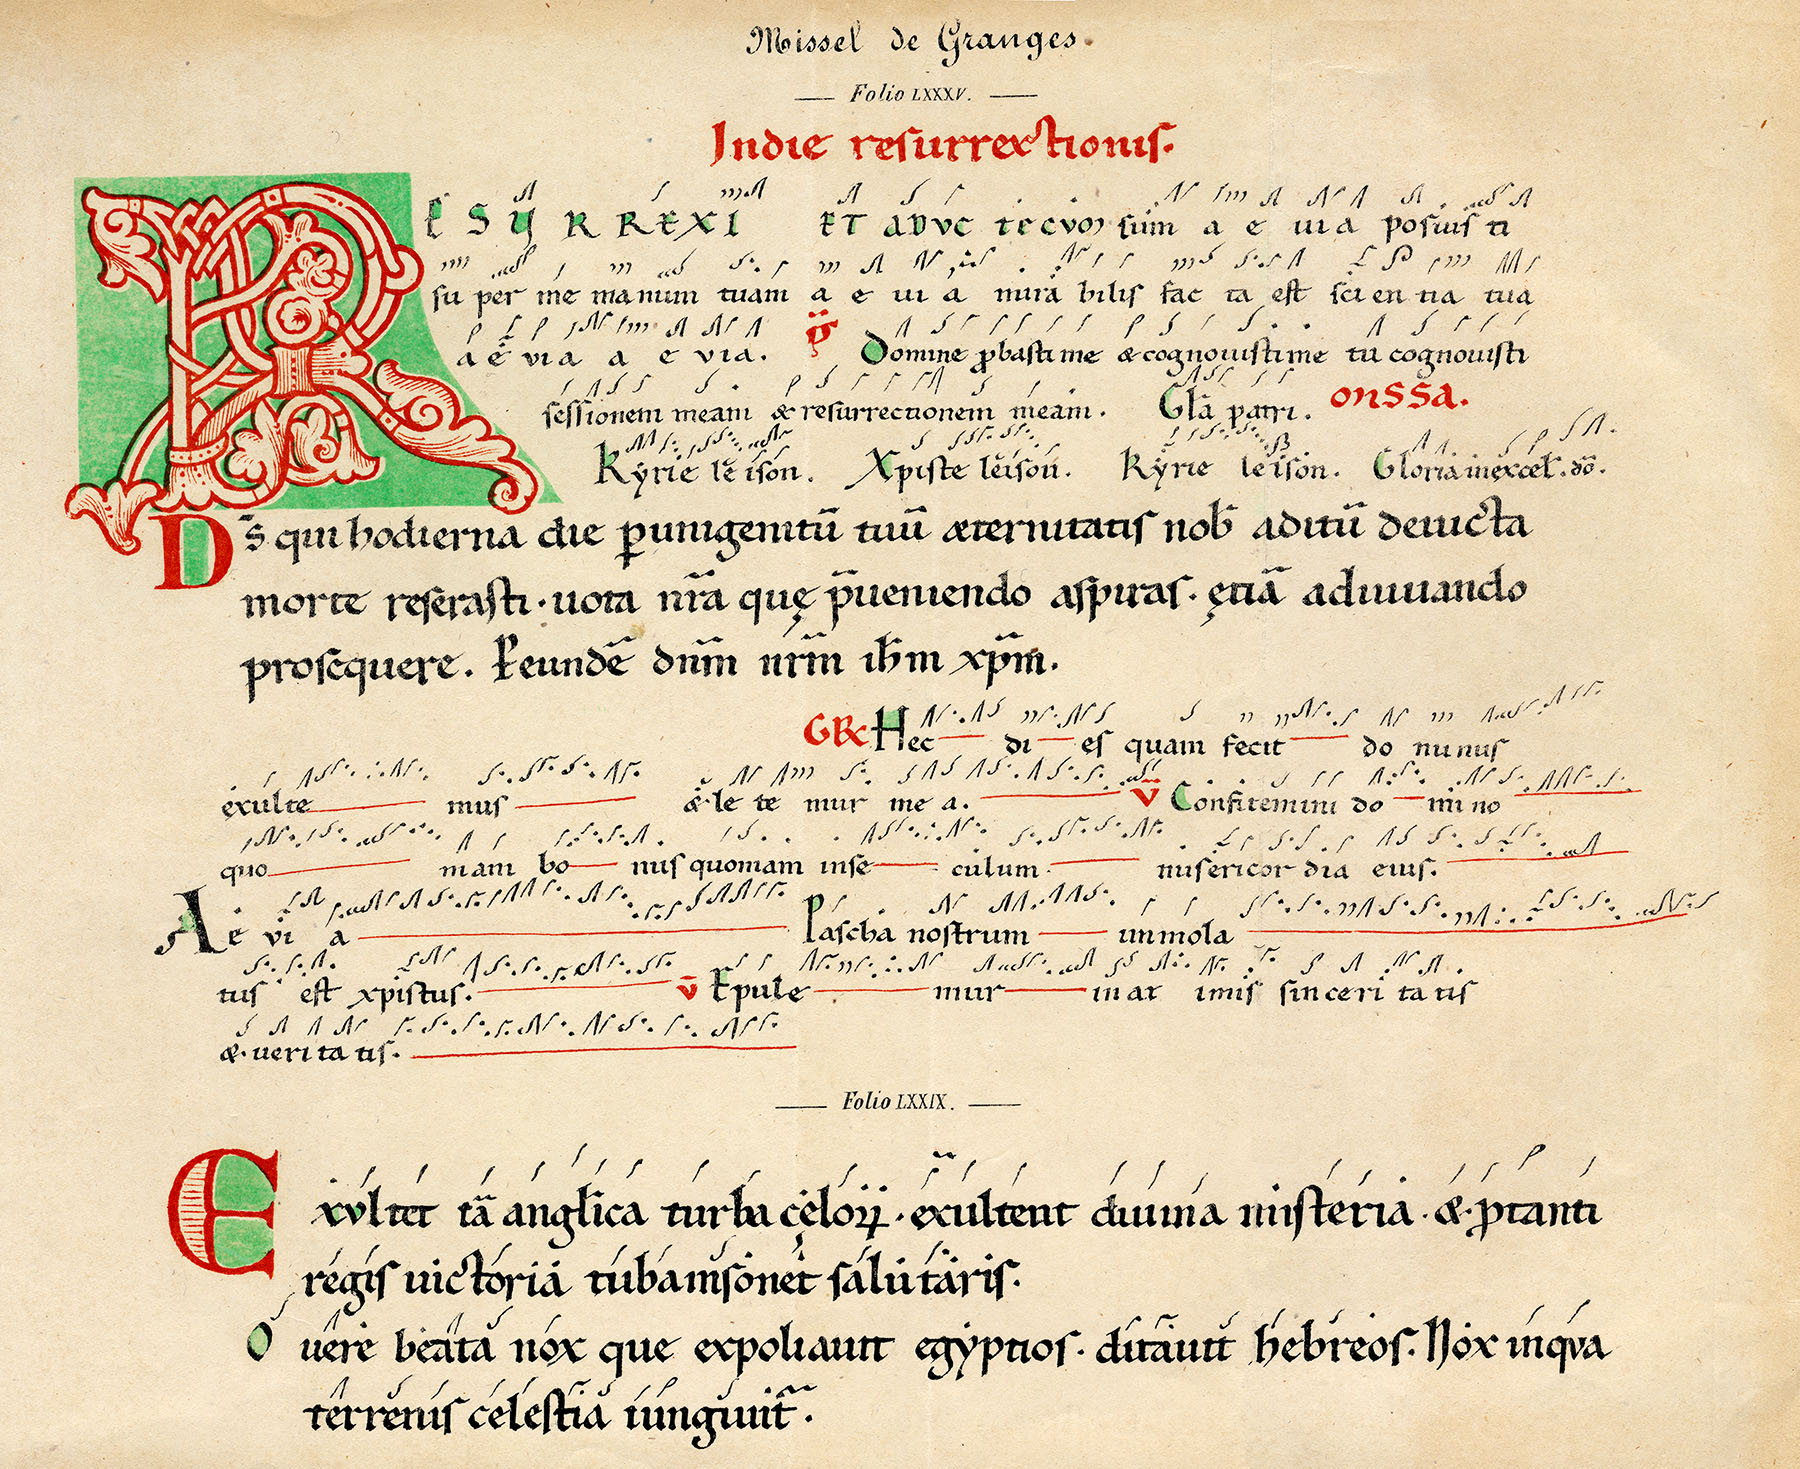 Missel de Granges.
Folio LXXXV.
Indie resurrectionis.
RESURREXI ET ADVC tecum sum a e uia posuisti
super me manum tuam a e ui a mira bilis fac ta est scien tia tua
a e via a e via. ps̄ Domine pbasti me & cognouisti me tu cognouisti
sessionem meam & resurrectionem meam. Gła patri.
Kyrie leison. Xpiste leison. Kyrie leison. Gloria in excel. do.
D̄s qui hodierna die p unigenitū tuū æternitatis nob̄ aditū deuicta
morte reserasti. uota nr̄a quę p̄ueniendo aspiras. ętiā adiuuando
prosequere. Peundē dnm̄ nrm̄ ihm̄ xpm̄.
GR̄ Hec di es quam fecit do minus
exulte mus & le te mur in e a. v̄ Confitemini do mino
quo niam bo nus quoniam inse culum misericordia eius.
A e vi a Pascha nostrum immola
tus est xpistus. v̄ Epule mur in az imis sinceri ta tis
&. ueri ta tis.
Folio LXXIX.
Exultet iā anglica turba cęloꝝ. exultent diuina misteria. &. p tanti
regis uictoria tuba insonet salutaris.
O uere beata nox que expoliauit egyptios. ditauit hebreos. Nox inqua
terrenis celestia iunguūt.